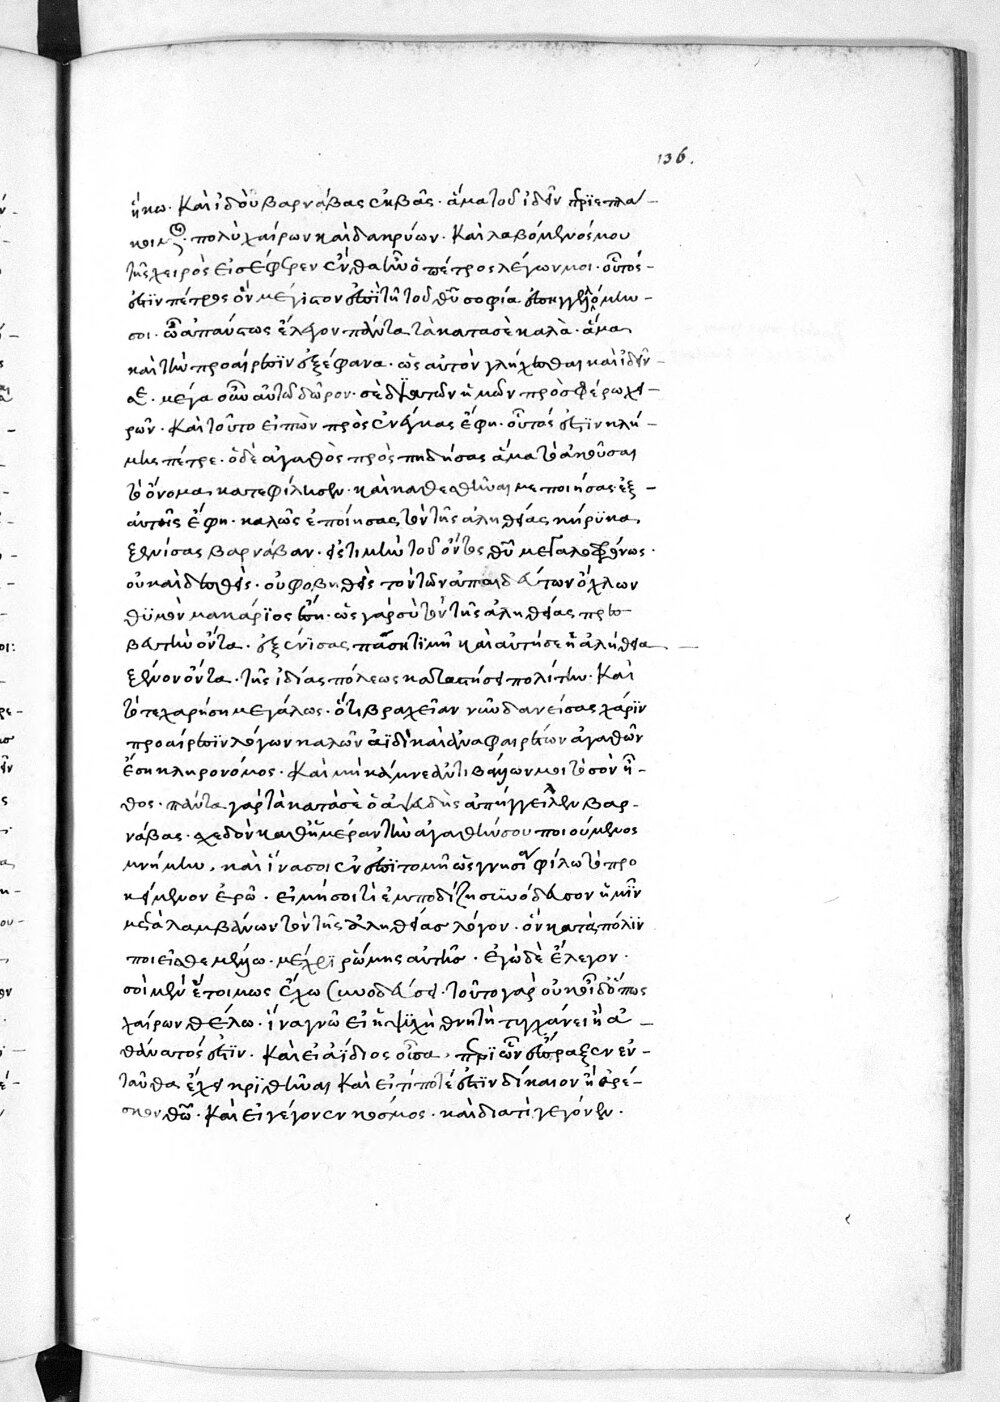 136.
ἥκω· Καὶ ἰδοὺ βαρνάβας ἐκβὰς· ἅμα τοῦ ἰδεῖν περιεπλά-
κη μοι πολὺ χαίρων καὶ δακρύων· Καὶ λαβόμενός μου
τῆς χειρὸς εἰσέφερεν ἔνθα ἦν ὁ πέτρος λέγων μοι· οὗτός
ἐστιν πέτρος ὃν μέγιστον ἐπὶ τῇ τοῦ θῦ σοφίᾳ ἐπηγγειλόμην
σοι· ὧ ἀπαύστως ἔλεγον πάντα τὰ κατὰ σὲ καλὰ· ἅμα
καὶ τὴν προαίρεσιν ἐξέφανα· ὡς αὐτὸν γλίχεσθαι καὶ ἰδεῖν
σε· μέγα οὖν αὐτῶ δῶρον· σὲ δι' αὐτῶν ἡμῶν προσφέρω χει-
ρῶν· Καὶ τοῦτο εἰπὼν προσενέγκας ἔφη· οὗτός ἐστιν κλή-
μης πέτρε· ὁ δὲ ἀγαθὸς προσπηδήσας ἅμα τὸ ἀκοῦσαι
τὸ ὄνομα κατεφίλησεν· καὶ καθεσθῆναι με ποιήσας ἐξ
αὐτῆς ἔφη· καλῶς ἐποίησας τὸν τῆς ἀληθείας κήρυκα
ξενίσας βαρνάβαν· εἰς τιμὴν τοῦ ὄντος θῦ μεγαλοφρόνως·
οὐκ αἰδεσθεὶς· οὐ φοβηθεὶς τὸν τῶν ἀπαιδεύτων ὄχλων
θυμὸν μακάριος ἔσῃ· ὡς γὰρ σὺ τὸν τῆς ἀληθείας πρεσ-
βευτὴν ὄντα· ἐξένισας πάσῃ τιμῇ καὶ αὐτή σε ἡ ἀλήθεια
ξένον ὄντα· τῆς ἰδίας πόλεως καταστήσει πολίτην· Καὶ
τότε χαρήσῃ μεγάλως· ὅτι βραχεῖαν νῦν δανείσας χάριν
προαίρεσιν λόγων καλῶν ἀϊδίων καὶ ἀναφαιρέτων ἀγαθῶν
ἔσῃ κληρονόμος· Καὶ μὴ κάμνε ἀντιβάλλων μοι τὸ σὸν ἦ-
θος· πάντα γὰρ τὰ κατὰ σὲ ὁ ἀψευδὴς ἀπήγγειλεν βαρ-
νάβας· σχεδὸν καθ' ἡμέραν τὴν ἀγαθήν σου ποιούμενος
μνήμην· καὶ ἵνα σοι ἐν ἐπιτομῇ ὡς γνησίῳ φίλω τὸ προ
κείμενον ἐρῶ· εἰ μή σοί τι ἐμποδίζῃ συνόδευσον ἡμῖν
μεταλαμβάνων τὸν τῆς ἀληθείας λόγον· ὃν κατὰ πόλιν
ποιεῖσθε μέλλω· μέχρι ῥώμης αὐτῆς· ἐγὼ δὲ ἔλεγον·
σοὶ μὲν ἑτοίμως ἔχω συνοδεύσειν· τοῦτο γὰρ οὐκ οἶδ' ὅπως
χαίρων θέλω· ἵνα γνῶ εἰ ἡ ψυχὴ θνητὴ τυγχάνει ἢ ἀ
θάνατός ἐστιν· Καὶ εἰ ἀΐδιος οὖσα· περὶ ὧν ἔπραξεν ἐν
ταῦθα ἔχει κριθῆναι Καὶ εἴ τί ποτέ ἐστιν δίκαιον ἢ ἀρέ-
σκον θῶ· Καὶ εἰ γέγονεν κόσμος· καὶ διατὶ γεγόνεν·